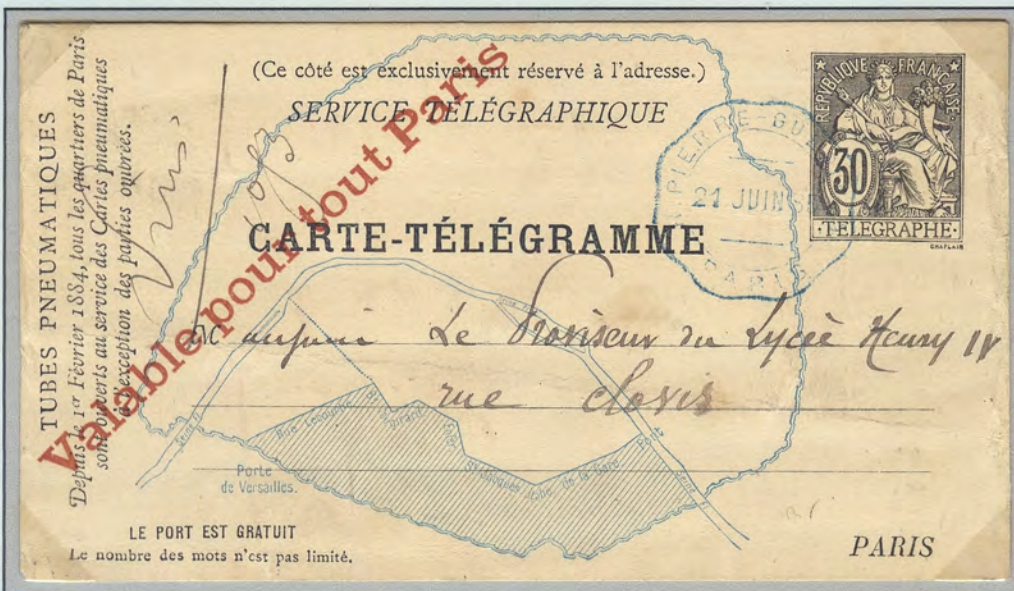 TUBES PNEUMATIQUES
Depuis le 1er Février 1884, tous les quartiers de Paris
sont ouverts au service des Cartes pneumatiques
à l'exception des parties ombrées.
Valable pour tout Paris
(Ce côté est exclusivement réservé à l'adresse.)
SERVICE TÉLÉGRAPHIQUE
CARTE-TÉLÉGRAMME
REPUBLIQUE FRANÇAISE
30
TELEGRAPHE
CHAPLAIN
PIERRE-GU
21 JUIN
PARIS
Le Proviseur du Lycée Henry IV
rue Clovis
Seine
Rue Lecourbe
Porte
de Versailles.
St Jacques
de la Gare
Pont
Seine
LE PORT EST GRATUIT
Le nombre des mots n'est pas limité.
PARIS